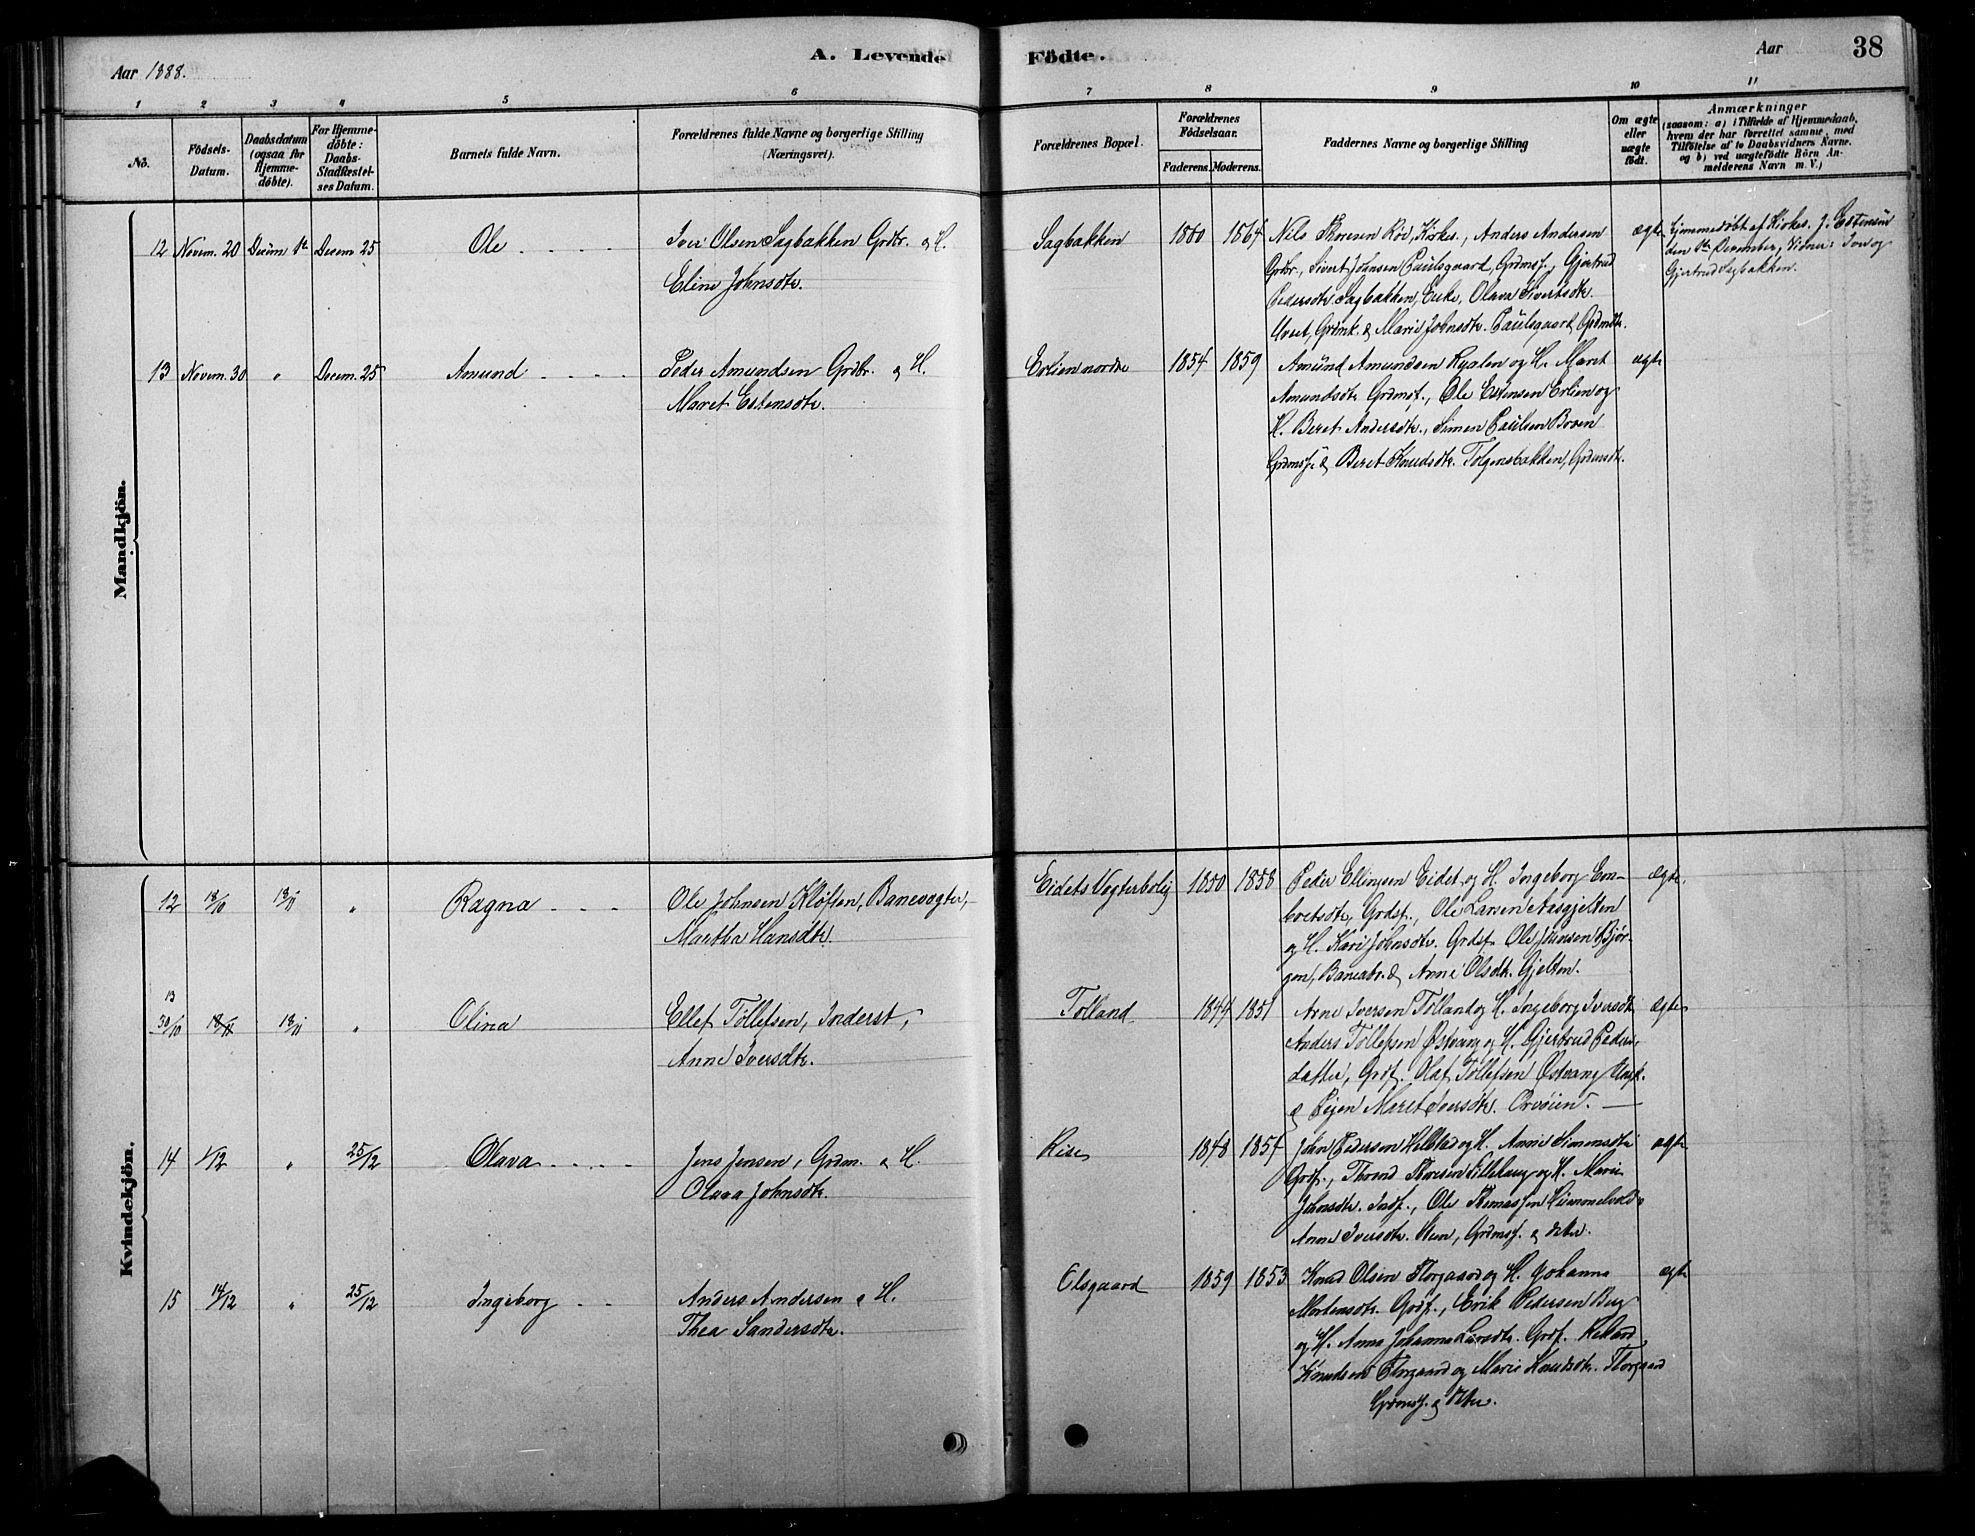 Aar 1888.
A. Levende
Födte.
Aar
38
1 2 3 4 5 6 7 8 9 10 11
No.
Födsels-
Datum.
Daabsdatum
(ogsaa for
Hjemme-
döbte).
For Hjemme-
döbte:
Daabs-
Stadfæstel-
ses Datum.
Barnets fulde Navn.
Forældrenes fulde Navne og borgerlige Stilling
(Næringsvei).
Forældrenes Bopæl.
Forældrenes
Födselsaar.
Faderens. Moderens.
Faddernes Navne og borgerlige Stilling
Om ægte
eller
uægte
födt.
Anmærkninger
(saasom: a) i Tilfælde af Hjemmedaab,
hvem der har forrettet samme, med
Tilföielse af to Daabsvidners Navne,
og b) ved uægtefödte Börn An-
melderens Navn m. V.)
Mandkjön.
12 Novem. 20 Decem. Decem 25 Ole
Iver Olsen Sagbakken Grdbr. & H.
Eline Johnsdtr.
Sagbakken 1860 1864
Nils Thoresen Röe, Kirkes., Anders Andersen
Grdbr., Sivert Johnsen Paulsgaard, Grdmsf., Gjertrud
Pedersdtr Sagbakken, Enke, Olava Sivertsdtr.
& Marie Johnsdtr. Paulsgaard, Grdmdtr.
ægte
Hjemmedöbt af Kirkes. J. Estensen
den December, Vidner: Iver og
Gjertrud Sagbakken.
13 Novem. 30 " Decem. 25 Amund
Peder Amundsen Grdbr. & H.
Maret Estensdtr.
Erlien nordre 1854 1859
Amund Amundsen Ryalen og H. Maret
Amundsdtr Grdmsf., Ole Estensen Erlien og
H. Beret Andersdtr., Simen Paulsen Broen
Grdmsf. & Beret Knudsdtr. Tolgensbakken, Grdmdtr.
ægte
Kvindekjön.
12 13/10 18/11 " Ragna
Ole Johnsen Kløften, Banevogter,
Martha Hansdtr.
Eidets Vogterbolig 1850 1858
Peder Ellingsen Eidet og H. Ingeborg Em-
bretsdtr, Grdsf., Ole Larsen Aasgjelten
og H. Kari Johnsdtr. Grdsf. Ole Johnsen Bjør-
gen, Banearb. & Anne Olsdtr. Gjelten.
Ægte.
13
30/10 18/11 18/11 " Olina
Ellef Tollefsen, Inderst,
Anne Iversdtr.
Tolland 1844 1851
Arne Iversen Tolland og H. Ingeborg Iversdtr,
Anders Tollefsen Østvang og H. Gjertrud Peders-
datter, Grdf. Olaf Tollefsen Østvang Ungk.
& Pigen Maret Iversdtr. Orvøien.
Ægte
14 1/12 " 25/12 Olava
Jens Jensen, Grdm. & H.
Olava Johnsdtr.
Rise 1848 1854
John Pedersen og H. Anne Simensdtr
Grdf., Thrond Thoresen Lillehaug og H. Marie
Johnsdtr. Indf., Ole Thomassen Hummelvold &
Anne Iversdtr. Moen, Grdmsf. & dtter.
ægte
15 14/12 " 25/12 Ingeborg
Anders Andersen & H.
Thea Sandersdtr.
Elsgaard 1859 1853
Knud Olsen Florgaard og H. Johanna
Mortensdtr. Grdf., Erik Pedersen Berg
og H. Anna Johanna Larsdtr. Grdf.
Knudsen Florgaard og Marie Knudsdtr. Florgaard
Grdmsf. & Dtter.
ægte